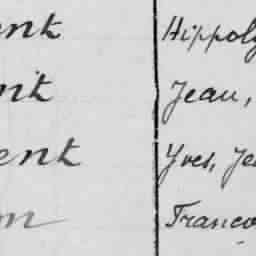 ent Hippoly
nt Jean,
ent Yves, Je
m Franço